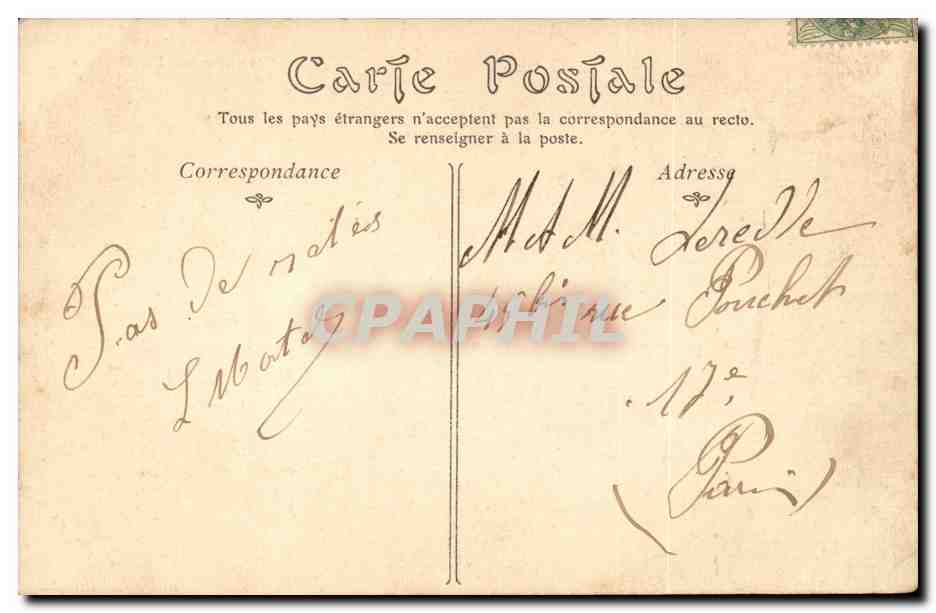 Carte Postale
Tous les pays étrangers n'acceptent pas la correspondance au recto.
Se renseigner à la poste.
Correspondance
Pas de
Adresse
M et M.
bis rue Pouchet
17e
(Paris)
CPAPHIL